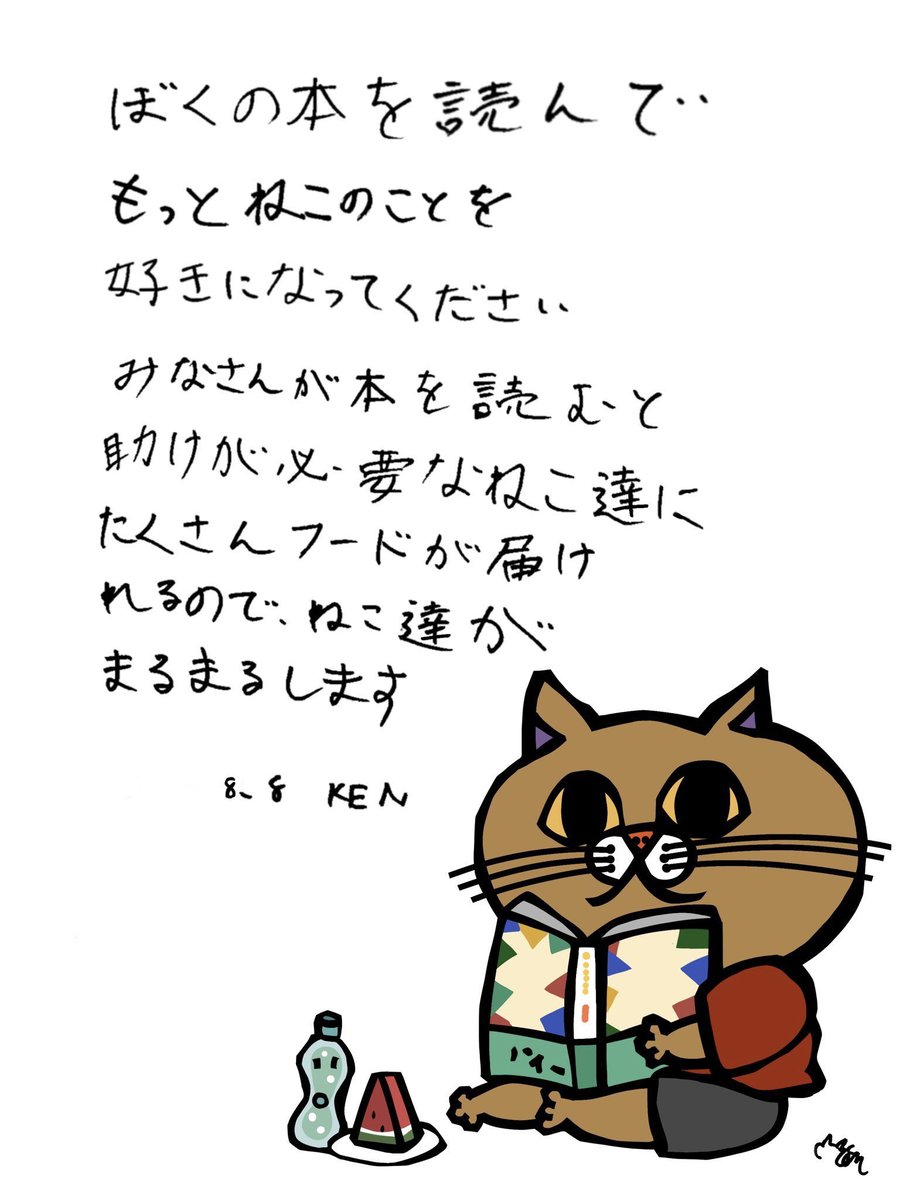 ぼくの本を読んで‥
もっとねこのことを
好きになってください
みなさんが本を読むと
助けが必要なねこ達に
たくさんフードが届け
れるので、ねこ達が
まるまるします
8.8 KEN